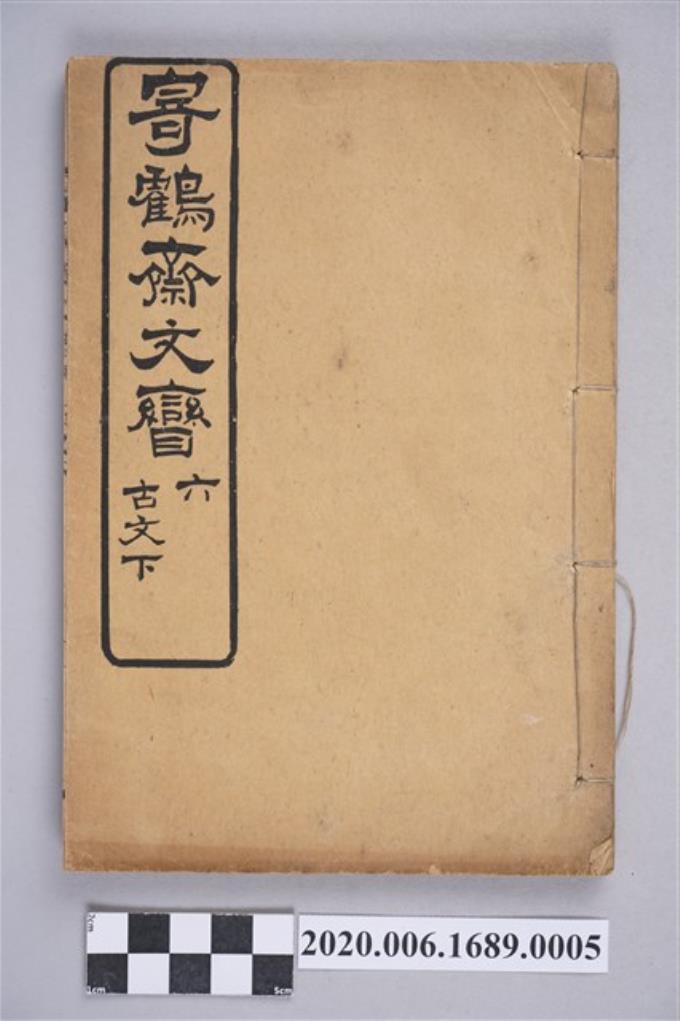 寄鶴齋文臠
六
古文下
2cm
1cm
5cm
2020.006.1689.0005